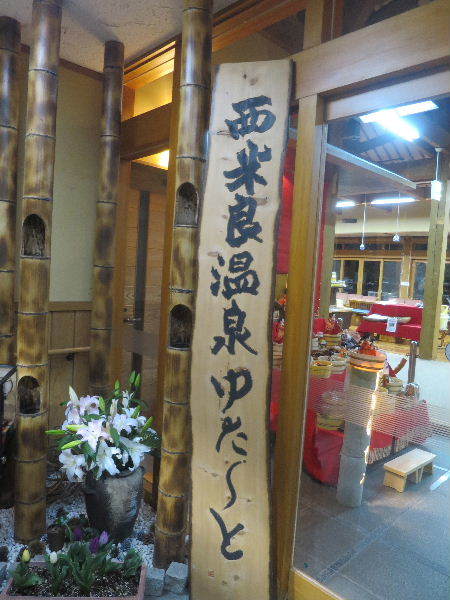 西米良温泉ゆた〜と